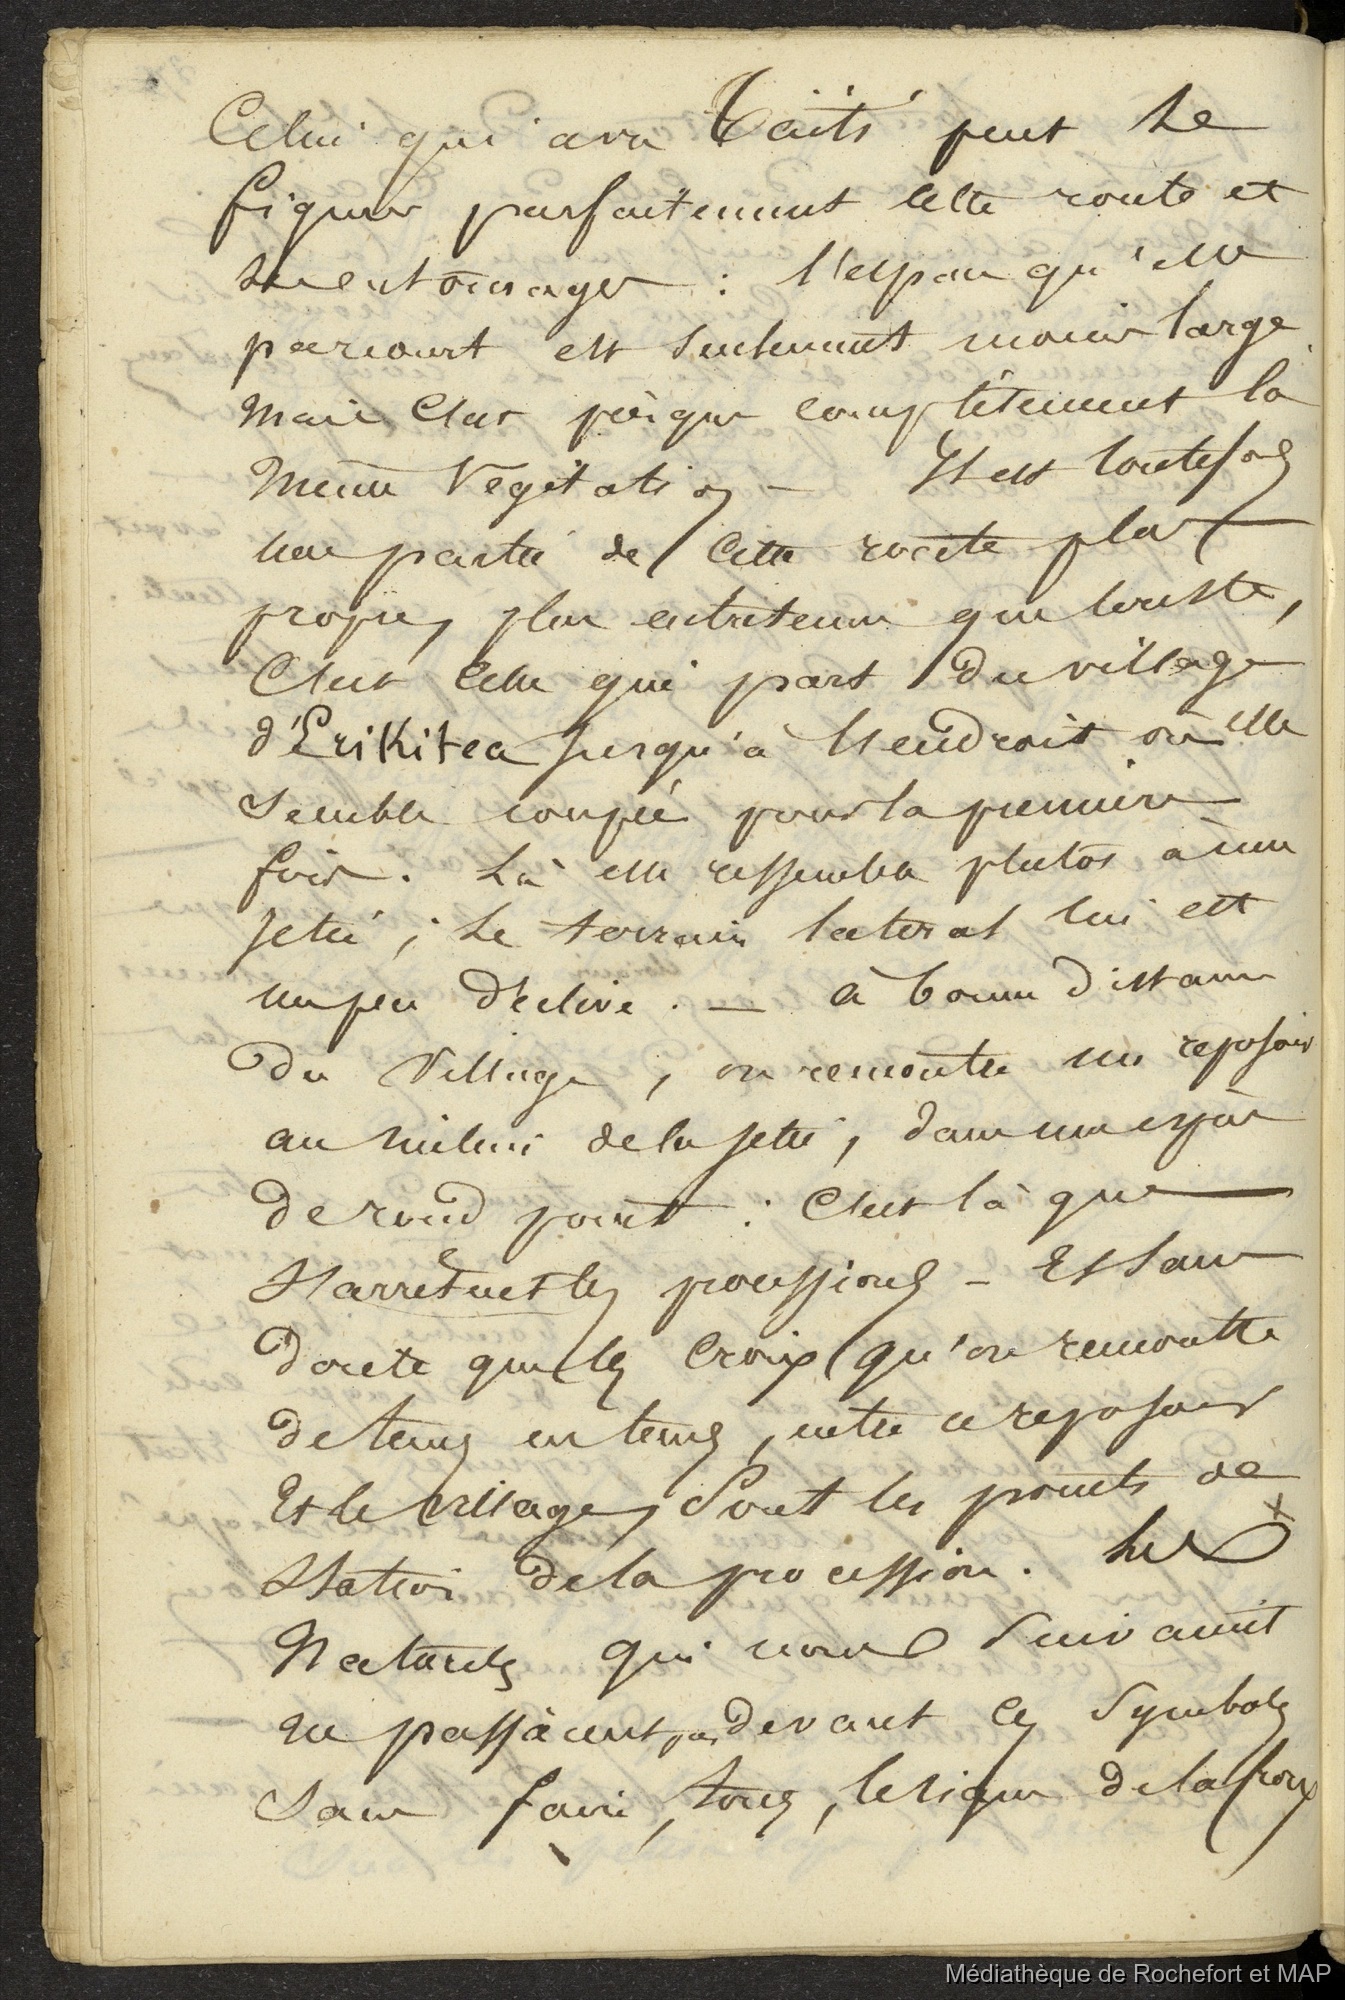 Celui qui a vu Taïti peut se
figurer parfaitement cette route et
son entourage : l'espace qu'elle
parcourt est seulement moins large
Mais c'est presque complétement la
même végétation — Il est toutefois
une partie de cette route plus
propre, plus entretenue que le reste,
C'est celle qui part du village
d'Erikitea jusqu'à l'endroit où elle
semble coupée pour la première
fois. Là elle ressemble plutôt à une
jetée ; le terrain lateral lui est
un peu déclive. — à bonne distance
du village, on rencontre un reposoir
au milieu de la jetée, dans une espèce
de rond point : C'est là que
s'arretent les processions — Et sans
doute que les Croix qu'on rencontre
de tems en tems, entre ce reposoir
Et le village, sont les points de
station de la procession. Les
Naturels qui nous suivaient
ne passaient pas devant ces symboles
sans faire, tous, le signe de la croix
Médiathèque de Rochefort et MAP